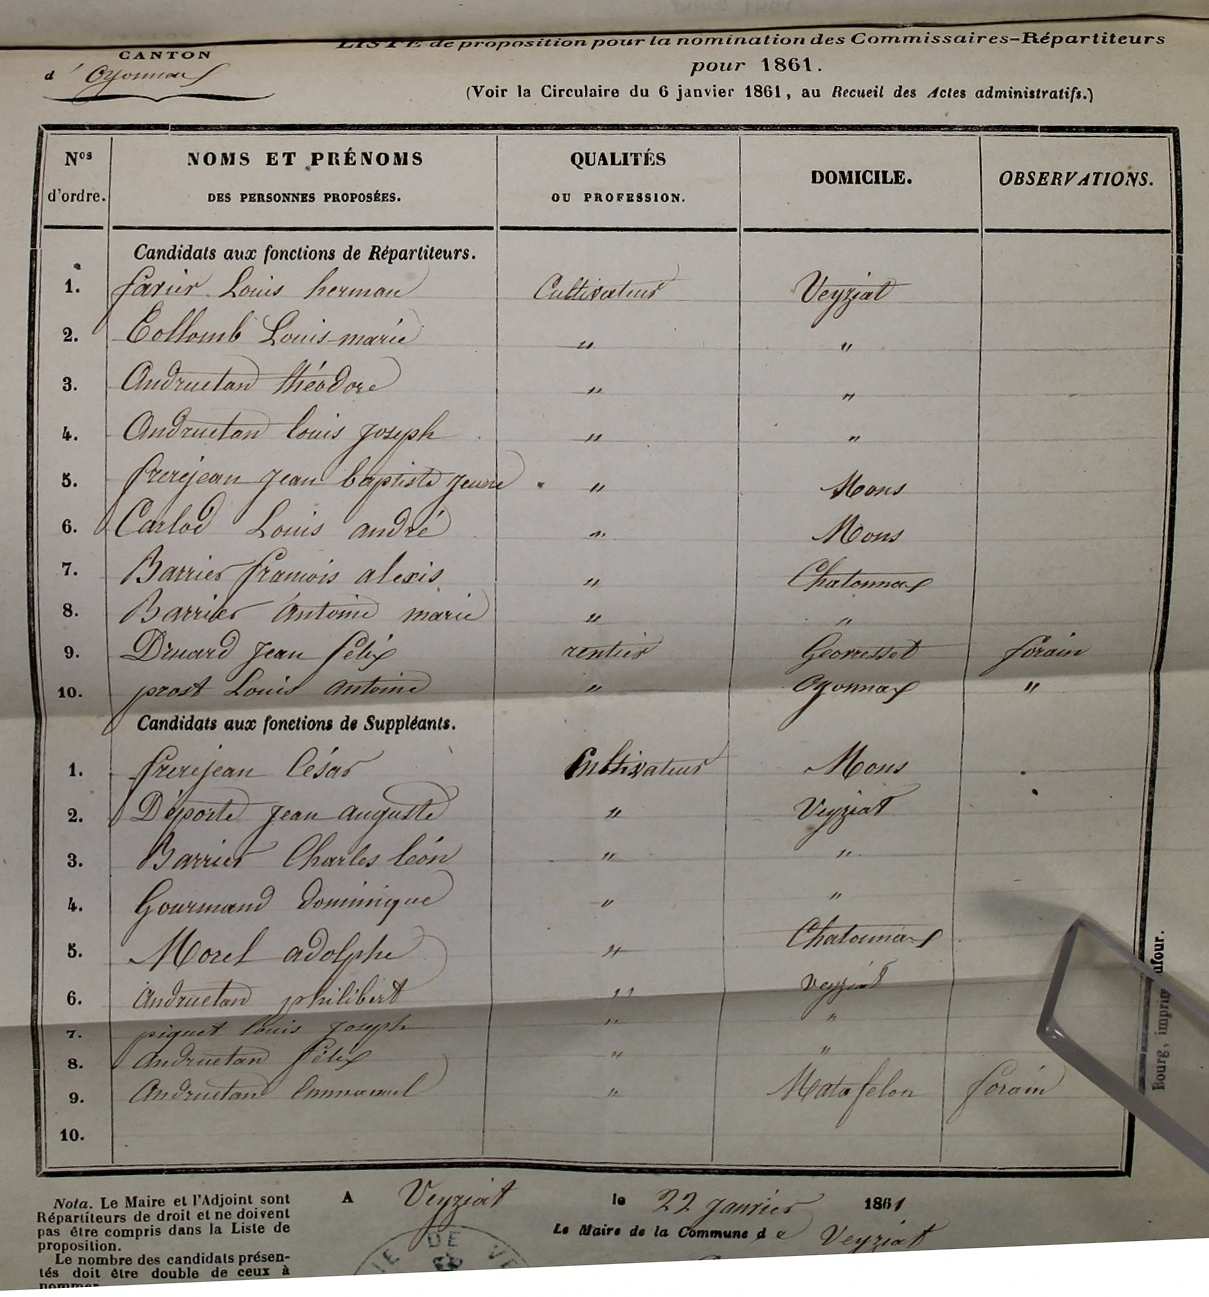 CANTON
d'Oyonnax
LISTE de proposition pour la nomination des Commissaires-Répartiteurs
pour 1861.
(Voir la Circulaire du 6 janvier 1861, au Recueil des Actes administratifs.)
Nos d'ordre. NOMS ET PRÉNOMS DES PERSONNES PROPOSÉES. QUALITÉS OU PROFESSION. DOMICILE. OBSERVATIONS.
Candidats aux fonctions de Répartiteurs.
1. Louis herman Cultivateur Veyziat
2. Collomb Louis marie " "
3. Andruetan théodore " "
4. Andruetan louis joseph " "
5. frerejean jean baptiste jeune " Mons
6. Carlod Louis andré " Mons
7. Barrier francois alexis " Chatonnax
8. Barrier Antoine marie " "
9. Druard jean félix rentier Geovresset forain
10. prost Louis antoine " Oyonnax "
Candidats aux fonctions de Suppléants.
1. frerejean César Cultivateur Mons
2. Déporte jean auguste " Veyziat
3. Barrier Charles léon " "
4. Gourmand dominique " "
5. Morel adolphe " Chatonnax
6. Andruetan philibert " veyziat
7. piquet louis joseph " "
8. Andruetan félix " "
9. Andruetan Emmanuel " Matafelon forain
10.
Bourg, imprim ufour.
A Veyziat le 22 janvier 1861
Le Maire de la Commune de Veyziat
Nota. Le Maire et l'Adjoint sont
Répartiteurs de droit et ne doivent
pas être compris dans la Liste de
proposition.
Le nombre des candidats présen-
tés doit être double de ceux à
nommer
IE DE VE